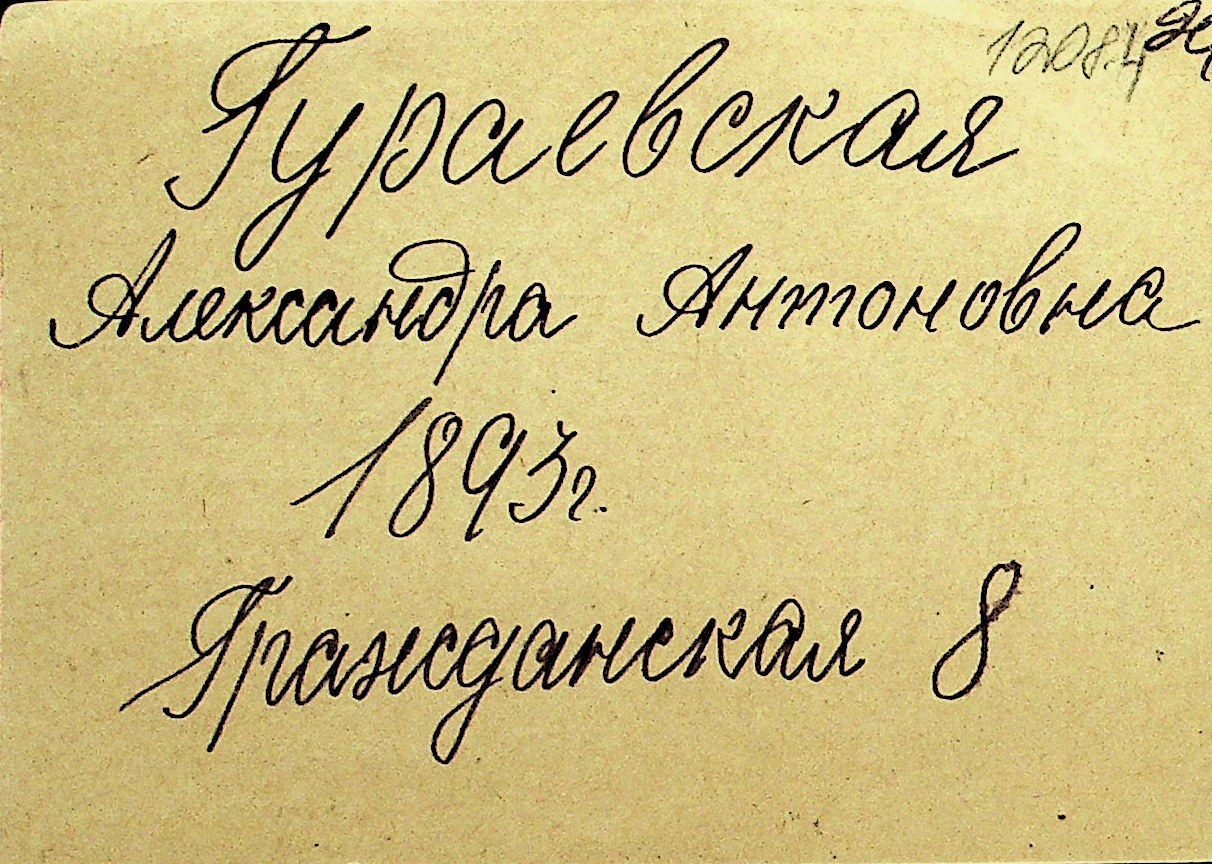 12084
Гураевская
Александра Антоновна
1893г.
Гражданская 8